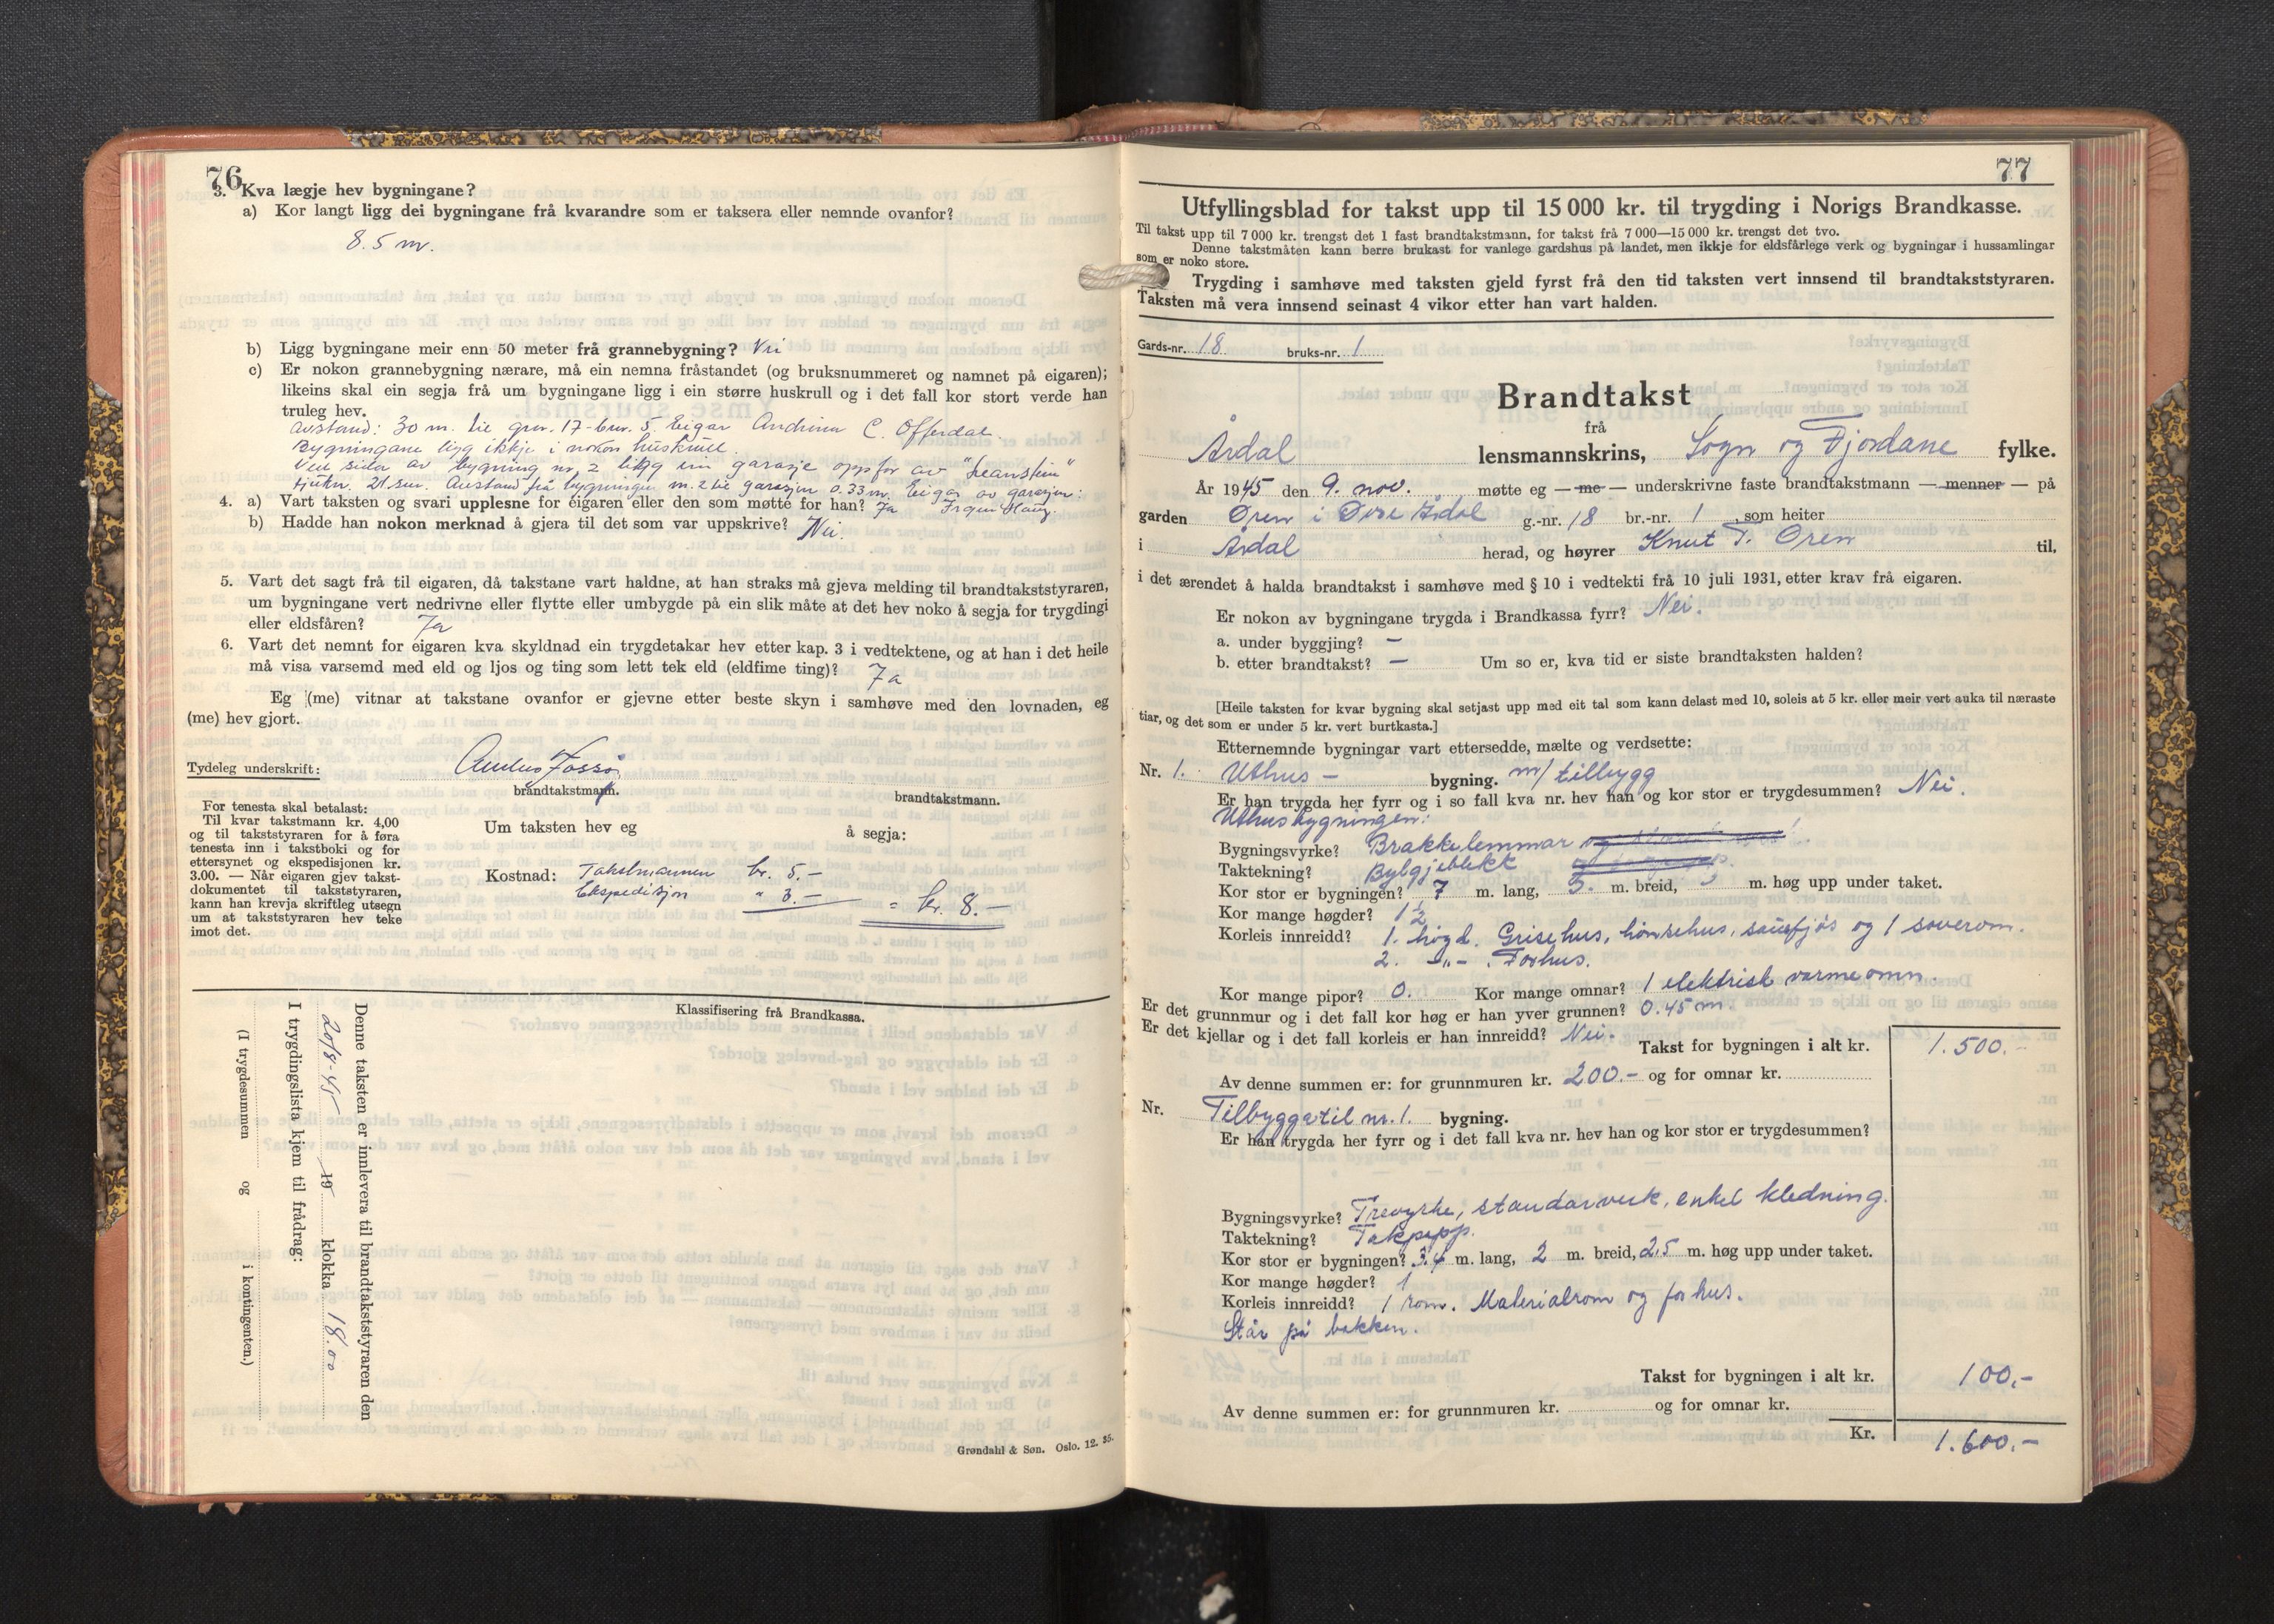 76
3. Kva lægje hev bygningane?
a) Kor langt ligg dei bygningane frå kvarandre som er taksera eller nemnde ovanfor?
8.5 m.
b) Ligg bygningane meir enn 50 meter frå grannebygning? Nei
c) Er nokon grannebygning nærare, må ein nemna fråstandet (og bruksnummeret og namnet på eigaren);
likeins skal ein segja frå um bygningane ligg i ein større huskrull og i det fall kor stort verde han
truleg hev.
Avstand: 30 m. til gnr. 17 - bnr. 5. Eigar C. Offerdal.
Bygningane ligg ikkje i nokon huskrull.
Ved sida av bygning nr. 2 ligg ein garasje oppför av
Avstand frå bygningen nr. 2 til garasjen 0.33 m. Eigar av garasjen:
4. a) Vart taksten og svari upplesne for eigaren eller den som møtte for han? Ja
b) Hadde han nokon merknad å gjera til det som var uppskrive? Nei.
5. Vart det sagt frå til eigaren, då takstane vart haldne, at han straks må gjeva melding til brandtakststyraren,
um bygningane vert nedrivne eller flytte eller umbygde på ein slik måte at det hev noko å segja for trygdingi
eller eldsfåren? Ja
6. Vart det nemnt for eigaren kva skyldnad ein trygdetakar hev etter kap. 3 i vedtektene, og at han i det heile
må visa varsemd med eld og ljos og ting som lett tek eld (eldfime ting)? Ja
Eg (me) vitnar at takstane ovanfor er gjevne etter beste skyn i samhøve med den lovnaden, eg
(me) hev gjort.
Tydeleg underskrift:
brandtakstmann. brandtakstmann.
For tenesta skal betalast:
Til kvar takstmann kr. 4,00
og til takststyraren for å føra
tenesta inn i takstboki og for
ettersynet og ekspedisjonen kr.
3.00. — Når eigaren gjev takst-
dokumentet til takststyraren,
kann han krevja skriftleg utsegn
um at takststyraren hev teke
imot det.
Um taksten hev eg å segja:
Kostnad: Takstmannen kr. 5.-
Ekspedisjon " 3.- = kr. 8.-
Klassifisering frå Brandkassa.
Denne taksten er innlevera til brandtakststyraren den
20/8-45 19 klokka 18.00
I trygdingslista kjem til frådrag:
(I trygdesummen og i kontingenten.)
Grøndahl & Søn. Oslo. 12. 35.
77
Utfyllingsblad for takst upp til 15 000 kr. til trygding i Norigs Brandkasse.
Til takst upp til 7 000 kr. trengst det 1 fast brandtakstmann, for takst frå 7 000—15 000 kr. trengst det tvo.
Denne takstmåten kann berre brukast for vanlege gardshus på landet, men ikkje for eldsfårlege verk og bygningar i hussamlingar
som er noko store.
Trygding i samhøve med taksten gjeld fyrst frå den tid taksten vert innsend til brandtakststyraren.
Taksten må vera innsend seinast 4 vikor etter han vart halden.
Gards-nr. 18 bruks-nr. 1
Brandtakst
frå
Årdal lensmannskrins, Sogn og Fjordane fylke.
År 1945 den 9. nov. møtte eg — me — underskrivne faste brandtakstmann — menner — på
garden Øren i Øvre Årdal g.-nr. 18 br.-nr. 1 som heiter
i Årdal herad, og høyrer Knut T. Øren til,
i det ærendet å halda brandtakst i samhøve med § 10 i vedtekti frå 10 juli 1931, etter krav frå eigaren.
Er nokon av bygningane trygda i Brandkassa fyrr? Nei.
a. under byggjing? –
b. etter brandtakst? – Um so er, kva tid er siste brandtaksten halden?
[Heile taksten for kvar bygning skal setjast upp med eit tal som kann delast med 10, soleis at 5 kr. eller meir vert auka til næraste
tiar, og det som er under 5 kr. vert burtkasta.]
Etternemnde bygningar vart ettersedde, mælte og verdsette:
Nr. 1. Uthus – bygning. m/ tilbygg
Er han trygda her fyrr og i so fall kva nr. hev han og kor stor er trygdesummen? Nei.
Uthusbygningen:
Bygningsvyrke? Brakkelemmar
Taktekning? Bylgjeblikk
Kor stor er bygningen? 7 m. lang, 5. m. breid, 3 m. høg upp under taket.
Kor mange høgder? 1½
Korleis innreidd? 1. högd. Grisehus, hönsehus, sauefjös og 1 soverom.
2. -„- . Forhus.
Kor mange pipor? 0. Kor mange omnar? 1 elektrisk varmeomn.
Er det grunnmur og i det fall kor høg er han yver grunnen? 0.45 m.
Er det kjellar og i det fall korleis er han innreidd? Nei.
Takst for bygningen i alt kr. 1.500.-
Av denne summen er: for grunnmuren kr. 200.- og for omnar kr.
Nr. Tilbygga til nr. 1. bygning.
Er han trygda her fyrr og i det fall kva nr. hev han og kor stor er trygdesummen?
Bygningsvyrke? Trevyrke, standarverk, enkel kledning.
Taktekning? Takpapp.
Kor stor er bygningen? 3.4 m. lang, 2 m. breid, 2.5 m. høg upp under taket.
Kor mange høgder? 1
Korleis innreidd? 1 rom. Materialrom og forhus.
Står på bakken.
Takst for bygningen i alt kr. 100.-
Av denne summen er: for grunnmuren kr. og for omnar kr.
Kr. 1.600.-